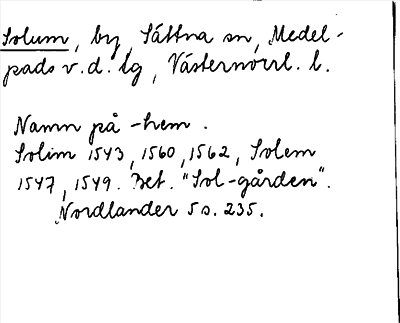 Solum, by, Sättna sn, Medel-
pads v.d. tg, Västernorrl. l.
Namn på -hem.
Solim 1543, 1560, 1562, Solem
1547, 1549. Bet. "Sol-gården".
Nordlander 5 s. 235.